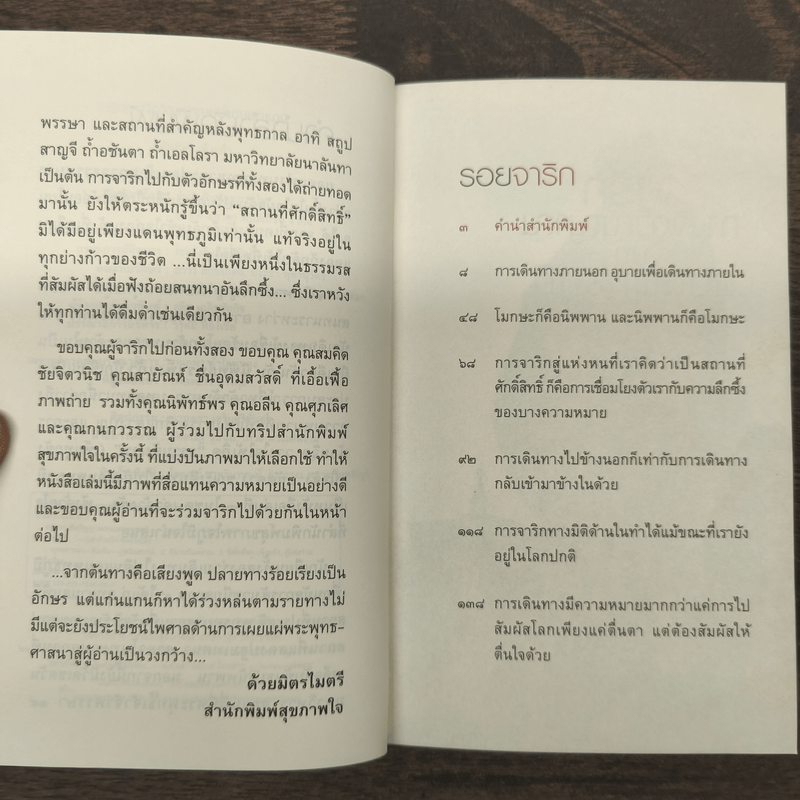 พรรษา และสถานที่สำคัญหลังพุทธกาล อาทิ สถูป
สาญจี ถ้ำอชันตา ถ้ำเอลโลรา มหาวิทยาลัยนาลันทา
เป็นต้น การจาริกไปกับตัวอักษรที่ทั้งสองได้ถ่ายทอด
มานั้น ยังให้ตระหนักรู้ขึ้นว่า “สถานที่ศักดิ์สิทธิ์”
มิได้มีอยู่เพียงแดนพุทธภูมิเท่านั้น แท้จริงอยู่ใน
ทุกย่างก้าวของชีวิต ...นี่เป็นเพียงหนึ่งในธรรมรส
ที่สัมผัสได้เมื่อฟังถ้อยสนทนาอันลึกซึ้ง... ซึ่งเราหวัง
ให้ทุกท่านได้ดื่มด่ำเช่นเดียวกัน
ขอบคุณผู้จาริกไปก่อนทั้งสอง ขอบคุณ คุณสมคิด
ชัยจิตวนิช คุณสายัณห์ ชื่นอุดมสวัสดิ์ ที่เอื้อเฟื้อ
ภาพถ่าย รวมทั้งคุณนิพัทธ์พร คุณอลีน คุณศุภเลิศ
และคุณกนกวรรณ ผู้ร่วมไปกับทริปสำนักพิมพ์
สุขภาพใจในครั้งนี้ ที่แบ่งปันภาพมาให้เลือกใช้ ทำให้
หนังสือเล่มนี้มีภาพที่สื่อแทนความหมายเป็นอย่างดี
และขอบคุณผู้อ่านที่จะร่วมจาริกไปด้วยกันในหน้า
ต่อไป
...จากต้นทางคือเสียงพูด ปลายทางร้อยเรียงเป็น
อักษร แต่แก่นแกนก็หาได้ร่วงหล่นตามรายทางไม่
มีแต่จะยังประโยชน์ไพศาลด้านการเผยแผ่พระพุทธ-
ศาสนาสู่ผู้อ่านเป็นวงกว้าง...
ด้วยมิตรไมตรี
สำนักพิมพ์สุขภาพใจ
รอยจาริก
๓ คำนำสำนักพิมพ์
๘ การเดินทางภายนอก อุบายเพื่อเดินทางภายใน
๔๘ โมกษะก็คือนิพพาน และนิพพานก็คือโมกษะ
๖๘ การจาริกสู่แห่งหนที่เราคิดว่าเป็นสถานที่
ศักดิ์สิทธิ์ ก็คือการเชื่อมโยงตัวเรากับความลึกซึ้ง
ของบางความหมาย
๙๒ การเดินทางไปข้างนอกก็เท่ากับการเดินทาง
กลับเข้ามาข้างในด้วย
๑๑๘ การจาริกทางมิติด้านในทำได้แม้ขณะที่เรายัง
อยู่ในโลกปกติ
๑๓๘ การเดินทางมีความหมายมากกว่าแค่การไป
สัมผัสโลกเพียงแค่ตื่นตา แต่ต้องสัมผัสให้
ตื่นใจด้วย